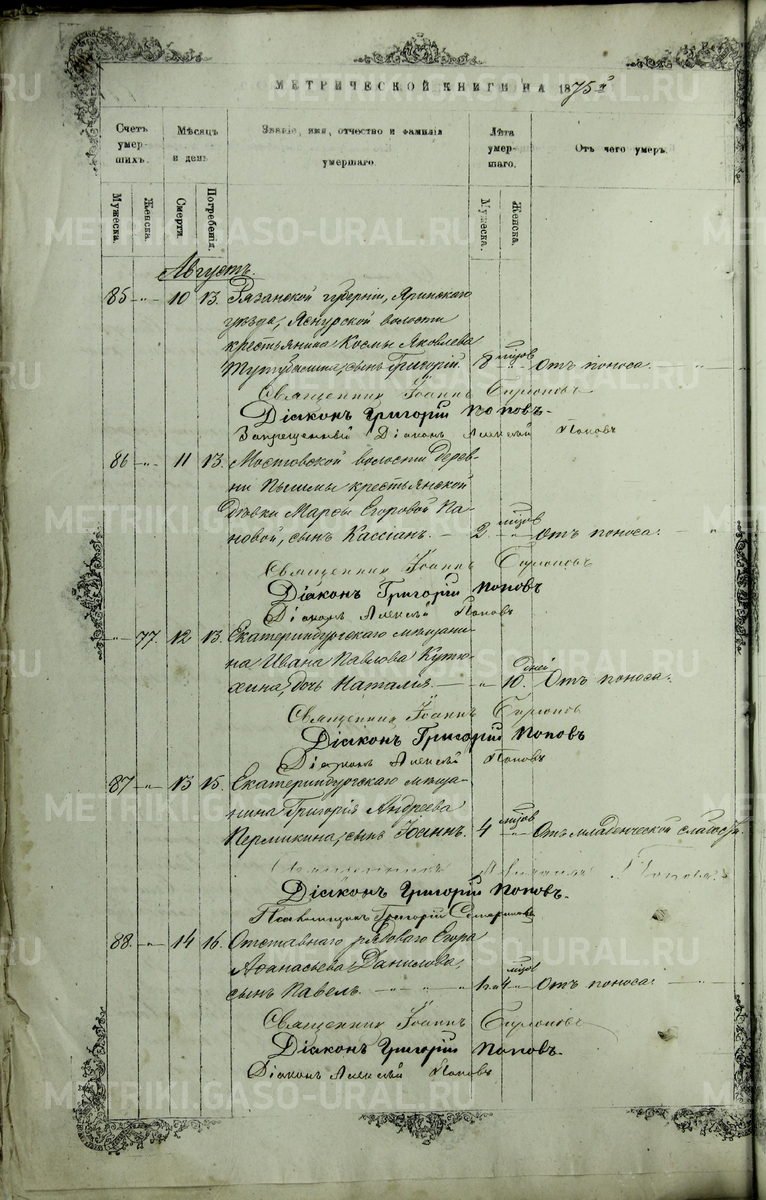 МЕТРИЧЕСКОЙ КНИГИ НА 1875 г.
Счетъ умершихъ.
Мѣсяцъ и день
Званіе, имя, отчество и фамилія умершаго.
Лѣта умершаго.
Отъ чего умеръ.
Мужеска. Женска. Смерти. Погребенія. Мужеска. Женска.
Августъ.
85 — „ — 10 13. Рязанской губерніи,
уѣзда, волости
крестьянина Космы Яковлева
сынъ Григорій. 8 мцов Отъ поноса.
Священникъ Іоаннъ
Діаконъ Григорій Поповъ.
Запрещенный Діаконъ Алексѣй Поповъ
86 — „ — 11 13. Мостовской волости дерев-
ни Пышмы крестьянской
дѣвки Марѳы Егоровой Па-
новой, сынъ Кассіанъ. — 2. мцов Отъ поноса.
Священникъ Іоаннъ
Діаконъ Григорій Поповъ
Діаконъ Алексѣй Поповъ
— „ — 77. 12 13. Екатеринбургскаго мѣщани-
на Ивана Павлова Кутю-
хина, дочь Наталія. — „ 10. дней Отъ поноса.
Священникъ Іоаннъ
Діаконъ Григорій Поповъ
Діаконъ Алексѣй Поповъ
87 — „ — 13 15. Екатеринбургскаго мѣща-
нина Григорія Андреева
Пермикина, сынъ Іоаннъ. 4 мцов Отъ младенческой слабости.
Священникъ
Діаконъ Григорій Поповъ.
Псаломщикъ Григорій
88. — „ — 14 16. Отставнаго рядоваго Егора
Аѳанасьева Данилова,
сынъ Павелъ. мцов Отъ поноса.
Священникъ Іоаннъ
Діаконъ Григорій Поповъ.
Діаконъ Алексѣй Поповъ
METRIKI.GASO-URAL.RU